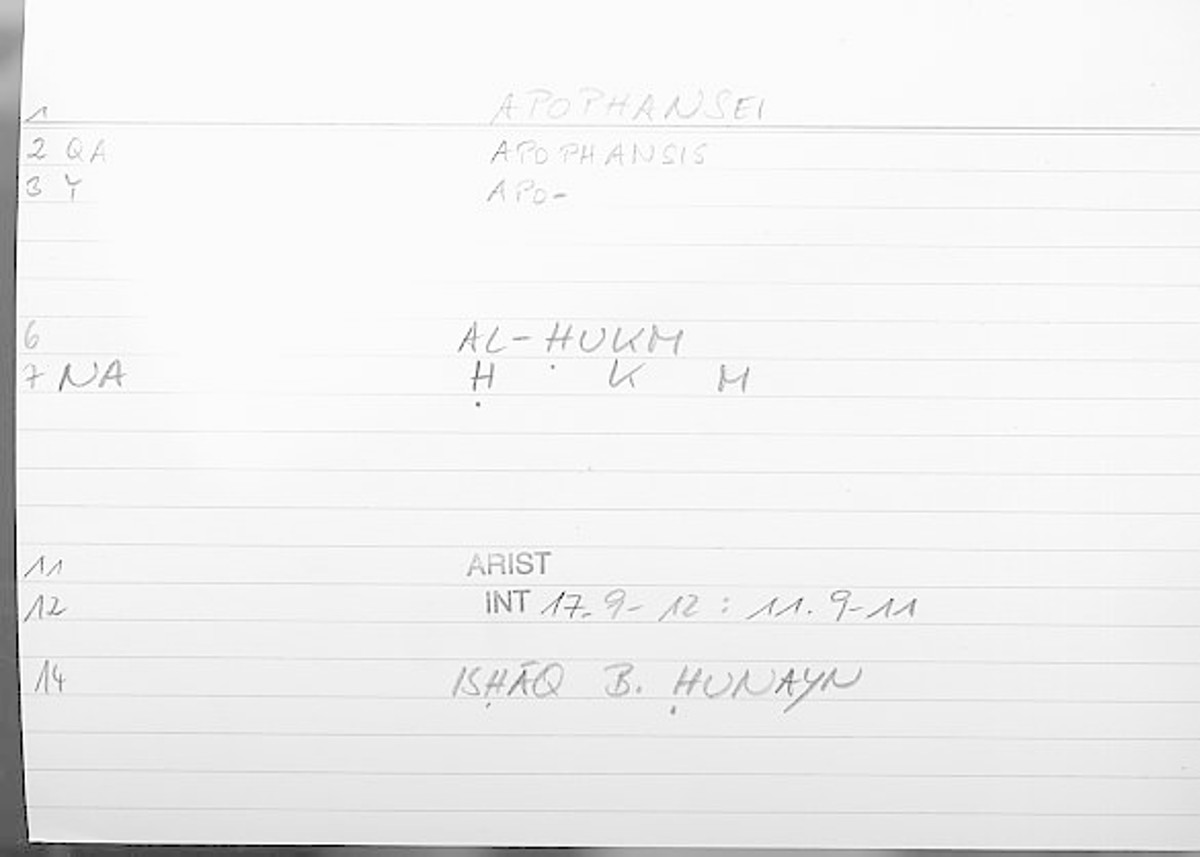 1 APOPHANSEI
2 QA APOPHANSIS
3 Y APO-
6 AL-ḤUKM
7 NA Ḥ K M
11 ARIST
12 INT 17.9-12 : 11.9-11
14 ISḤĀQ B. ḤUNAYN